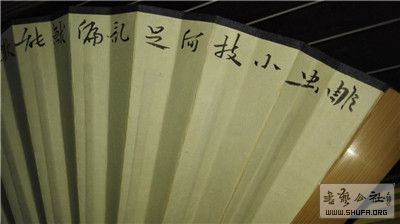 雕虫小技何足乱偏就能
书艺公社
WWW.SHUFA.ORG